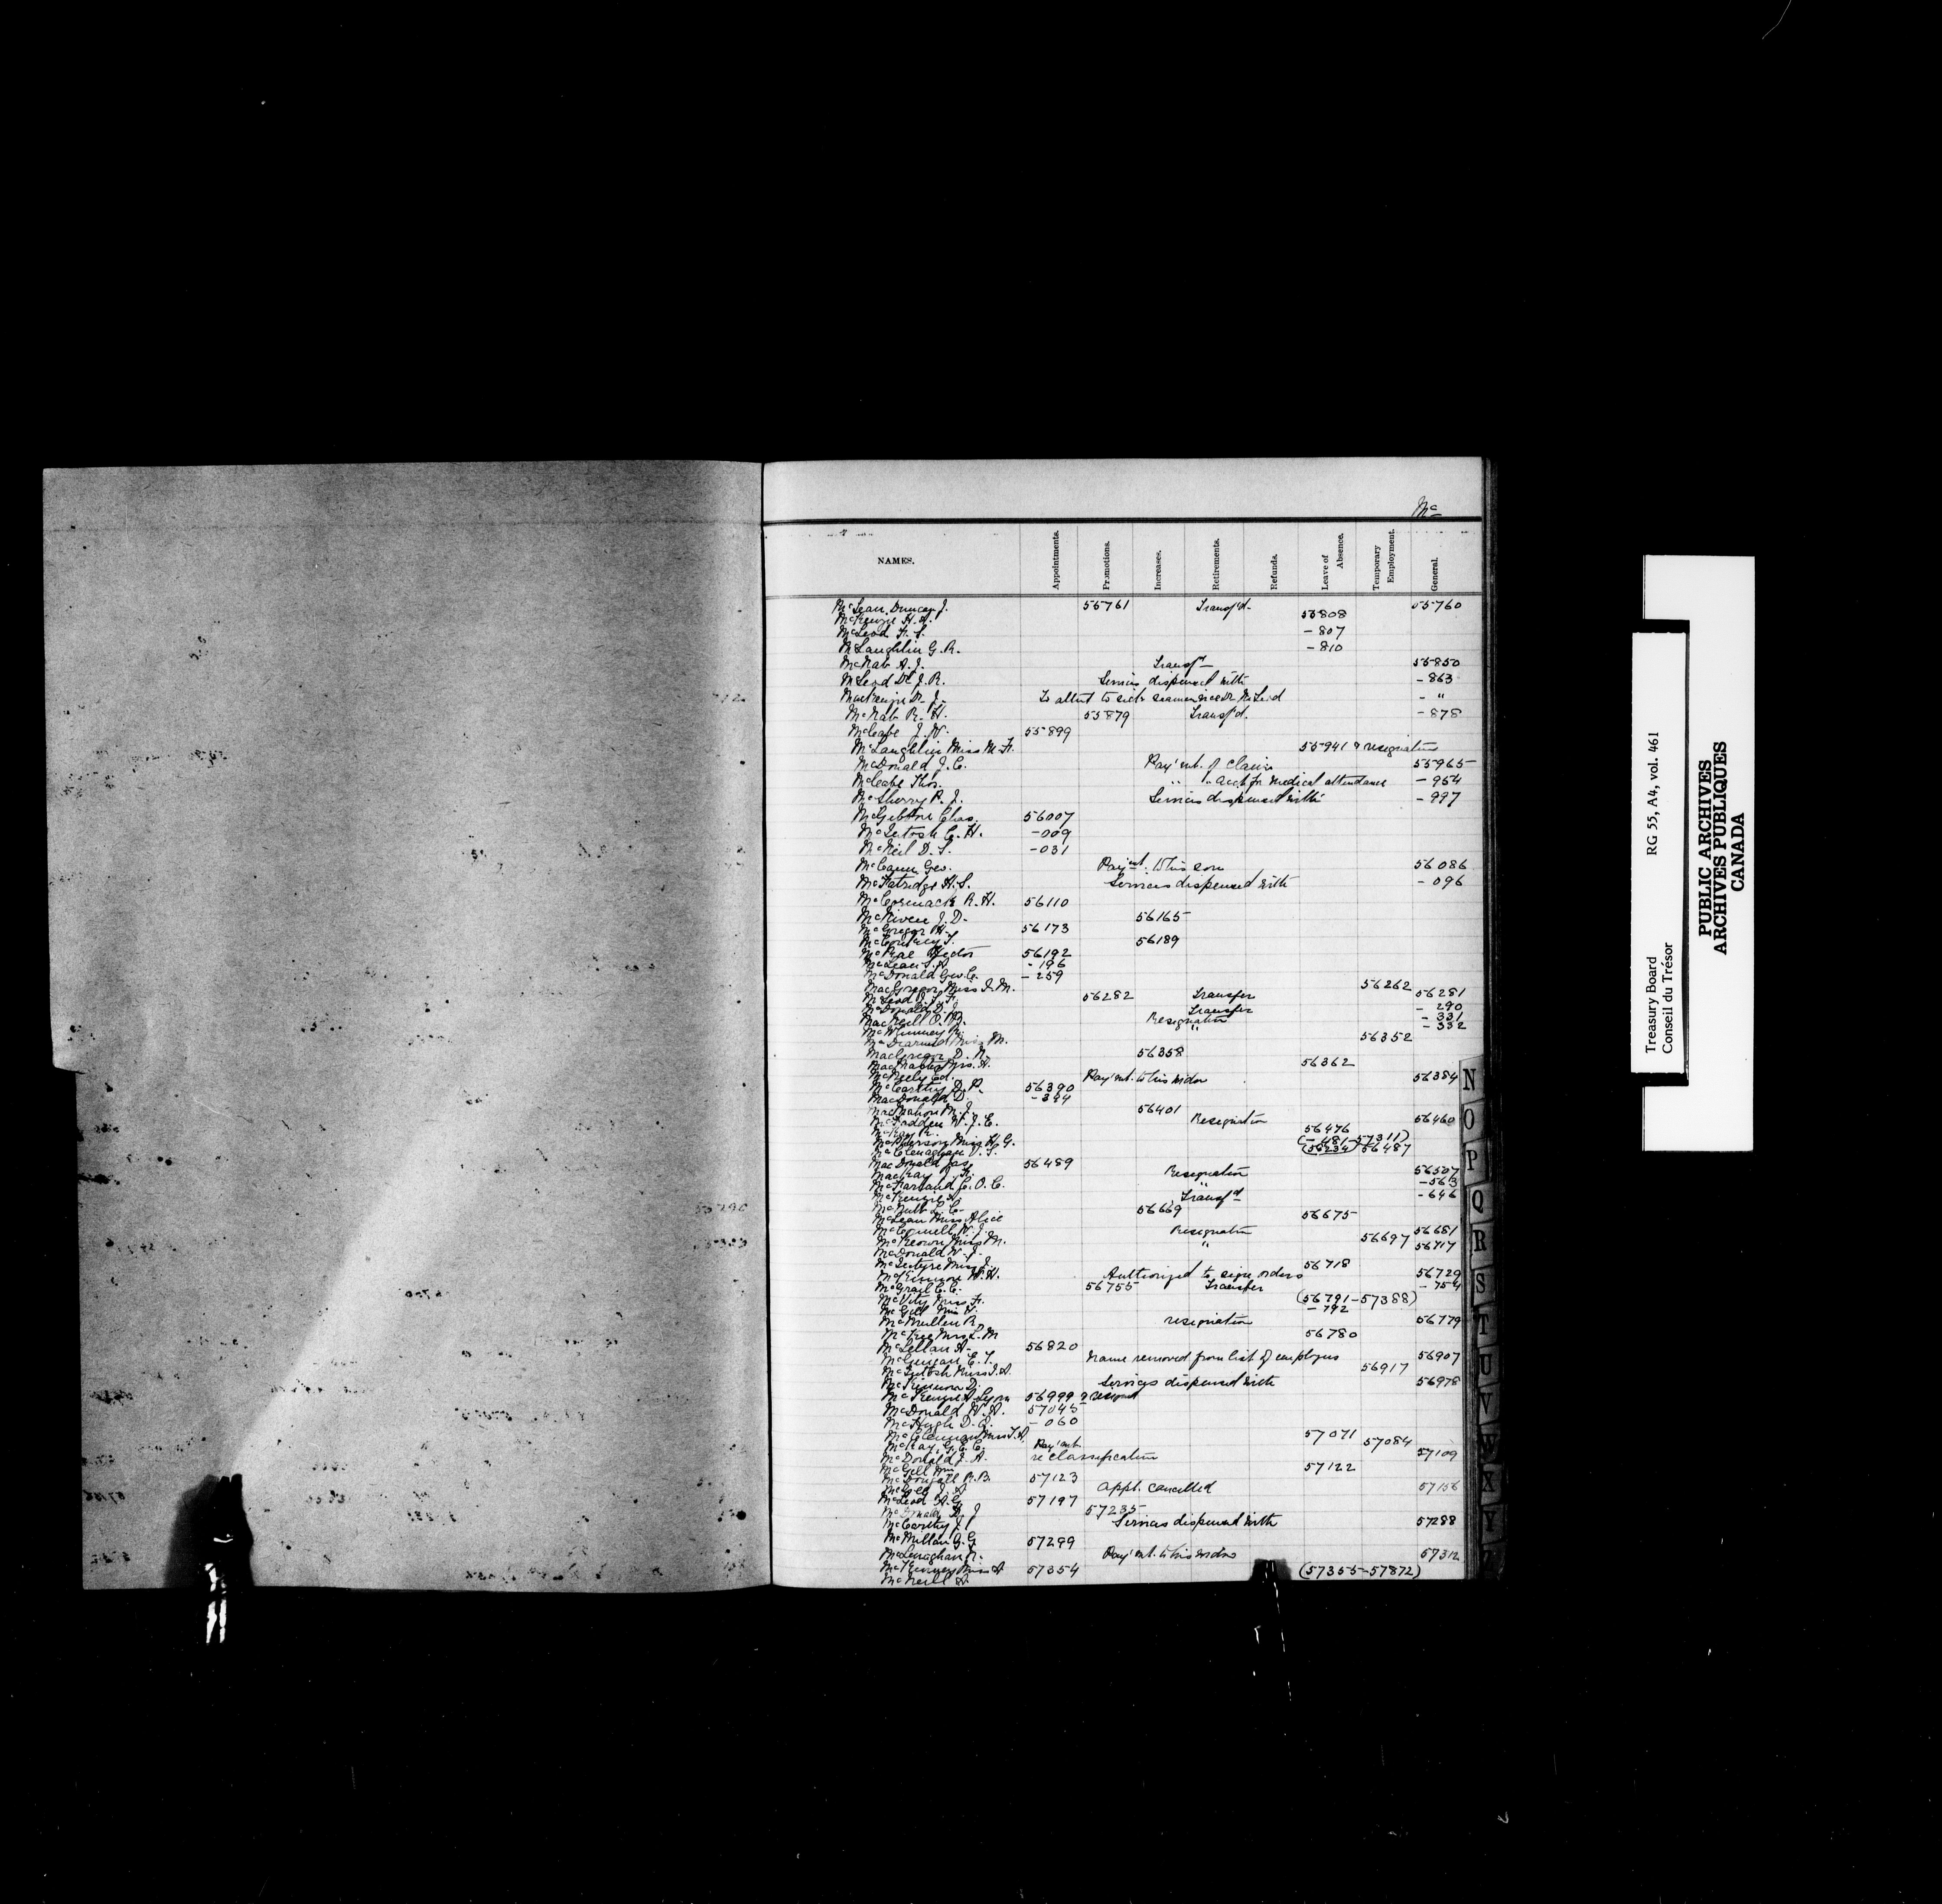 Mc
NAMES. Appointments. Promotions. Increases. Retirements. Refunds. Leave of Absence. Temporary Employment. General.
McLean, Duncan J. 55761 Transf'd. 55760
McKenzie H. A. 55808
McLeod F. S. - 807
McLaughlin G. R. - 810
McNab A. J. Transf'd 55850
McLeod Dr J. R. Services dispensed with - 863
MacKenzie Dr. J. To attend to sick seamen vice Dr McLeod - "
McNab R. H. 55879 Transf'd. - 878
McCabe J. W. 55899
McLaughlin Miss M. F. 55941 resignation
McDonald J. C. Pay'ent. of claim 55965
McCabe Thos. " " acct for medical attendance - 954
McSherry R. J. Services dispensed with - 997
McGibbon Chas. 56007
McIntosh C. H. - 009
McNeil D. S. - 031
McCann Geo. Pay'ent. to his son 56086
McFatridge H. S. Services dispensed with - 096
McCormack R. H. 56110
McNiven J. D. 56165
McGregor 56173
56189
McRae Hector 56192
McLean - 196
McDonald Geo. C. - 259
MacGregor Miss I. M. 56262
McLeod 56282 Transfer 56281
Transfer - 290
MacNeill Resignation - 331
McWhinney " - 332
McDiarmid Miss M. 56352
MacGregor D. N. 56358
56362
McNeely Ed. Pay'ent. to his widow 56384
McCarthy D. P. 56390
MacDonald D. - 394
MacMahon M. J. 56401
McFadden W. J. C. Resignation 56460
McKay R. 56476
McPherson Miss H. G. (- 481-57311)
McClenaghan (56234) 56487
MacDonald Jas. 56489
MacKay Resignation 56507
McFarland C. O. C. " - 563
McKenzie Transf'd - 646
McNutt L. C. 56669
McLean Miss Alice 56675
McConnell W. J. Resignation 56681
McKeown Miss M. 56697
McDonald W. J. " 56717
McIntyre Miss J. 56718
McKinnon W. H. Authorized to sign orders 56729
McGrail C. C. 56755 Transfer - 754
McVity Miss F. (56791-57388)
McGill Miss - 792
McMullen R. resignation 56779
McKee Miss L. M 56780
McLellan A. 56820
McGuigan E. T. Name removed from list of employees 56907
McIntosh Miss J. A. 56917
McKinnon D. Services dispensed with 56978
McKenzie 56999 resigned
McDonald W. A. 57045
McHugh D. - 060
57071
McKay, G. C. C. 57084
McDonald J. A. Pay'ent re classification 57109
McGill 57122
McDougall R. B. 57123
McLeod Appt. cancelled 57156
McLeod A. G. 57197
57235
McCarthy J. Services dispensed with 57288
McMillan 57299
McClenaghan Pay'ent. to his widow 57312
McKenney Miss A 57354
McNeill (57355-57872)
N
O
P
Q
R
S
T
U
V
W
X
Y
Treasury Board RG 55, A4, vol. 461
Conseil du Trésor
PUBLIC ARCHIVES
ARCHIVES PUBLIQUES
CANADA